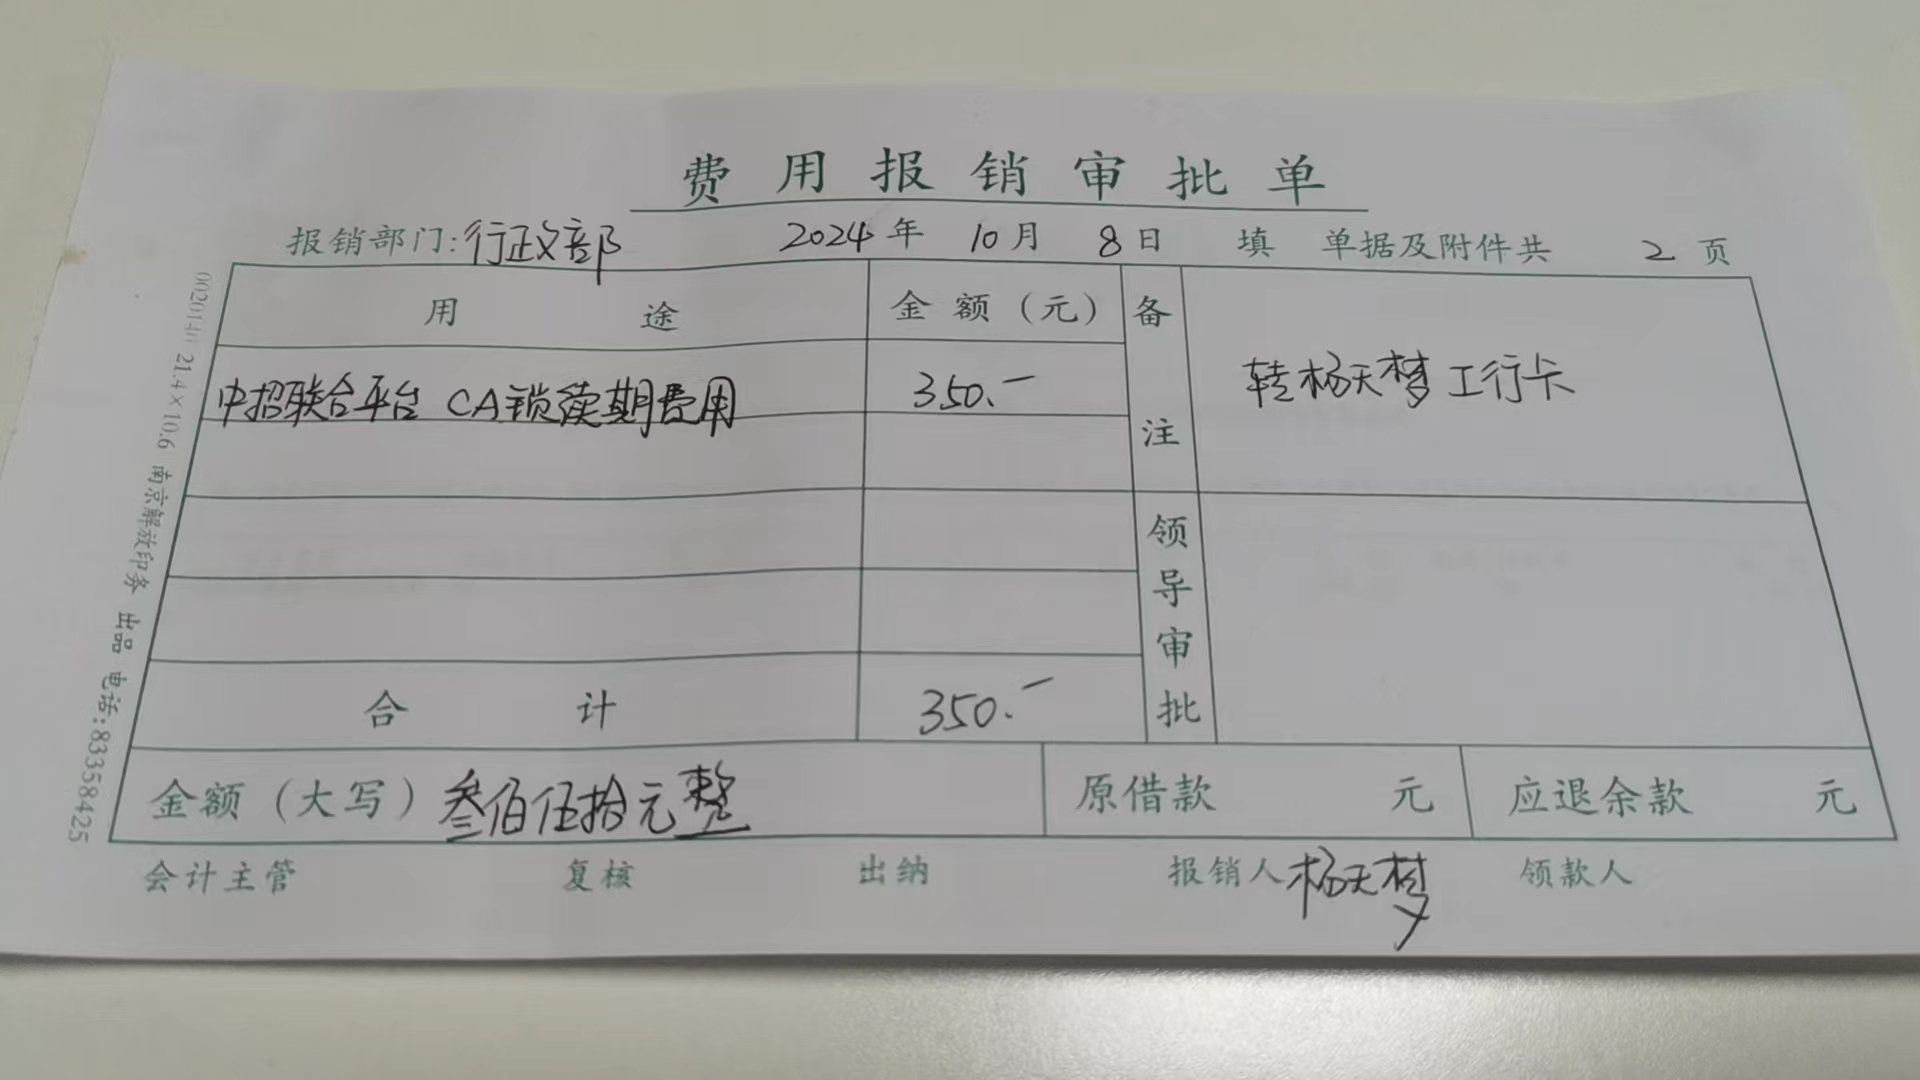 费用报销审批单
报销部门:行政部 2024年 10月 8日 填 单据及附件共 2 页
用途 金额(元) 备注
中招联合平台 CA锁续期费用 350.- 转杨天梦工行卡
领导审批
合计 350.-
金额(大写) 叁佰伍拾元整 原借款 元 应退余款 元
会计主管 复核 出纳 报销人 杨天梦 领款人
21.4×10.6 南京解放印务 出品 电话:83358425